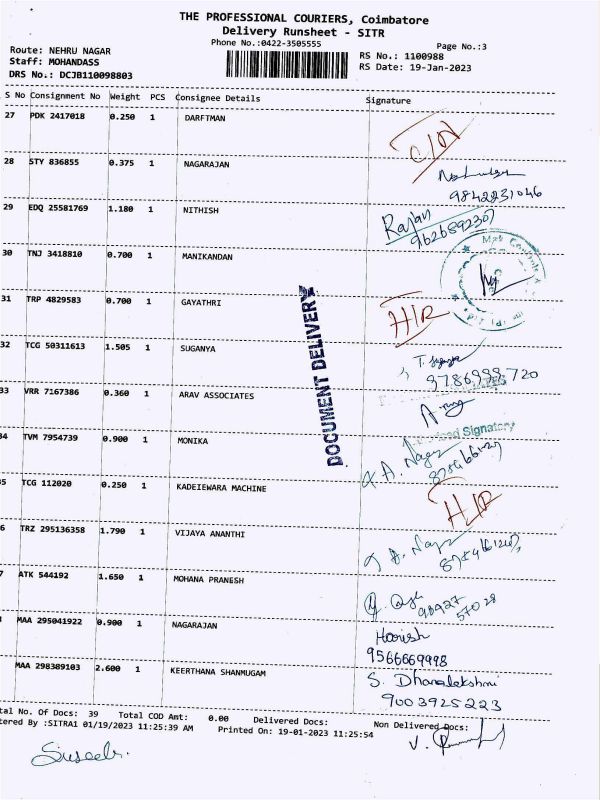 THE PROFESSIONAL COURIERS, Coimbatore
Delivery Runsheet - SITR
Phone No.:0422-3505555
Page No.:3
Route: NEHRU NAGAR
Staff: MOHANDASS
DRS No.: DCJB110098803
RS No.: 1100988
RS Date: 19-Jan-2023
S No Consignment No Weight PCS Consignee Details Signature
27 PDK 2417018 0.250 1 DARFTMAN
28 STY 836855 0.375 1 NAGARAJAN
9842231046
29 EDQ 25581769 1.180 1 NITHISH
Rajan
9626892307
30 TNJ 3418810 0.700 1 MANIKANDAN
31 TRP 4829583 0.700 1 GAYATHRI
H/R
32 TCG 50311613 1.505 1 SUGANYA
9786998720
33 VRR 7167386 0.360 1 ARAV ASSOCIATES
Signatory
34 TVM 7954739 0.900 1 MONIKA
35 TCG 112020 0.250 1 KADEIEWARA MACHINE
H/R
6 TRZ 295136358 1.790 1 VIJAYA ANANTHI
7 ATK 544192 1.650 1 MOHANA PRANESH
98427
57028
MAA 295041922 0.900 1 NAGARAJAN
Harish
9566669998
MAA 298389103 2.600 1 KEERTHANA SHANMUGAM
S. Dhanalekshmi
9003925223
DOCUMENT DELIVERY
tal No. Of Docs: 39 Total COD Amt: 0.00 Delivered Docs: Non Delivered Docs:
tered By :SITRA1 01/19/2023 11:25:39 AM Printed On: 19-01-2023 11:25:54